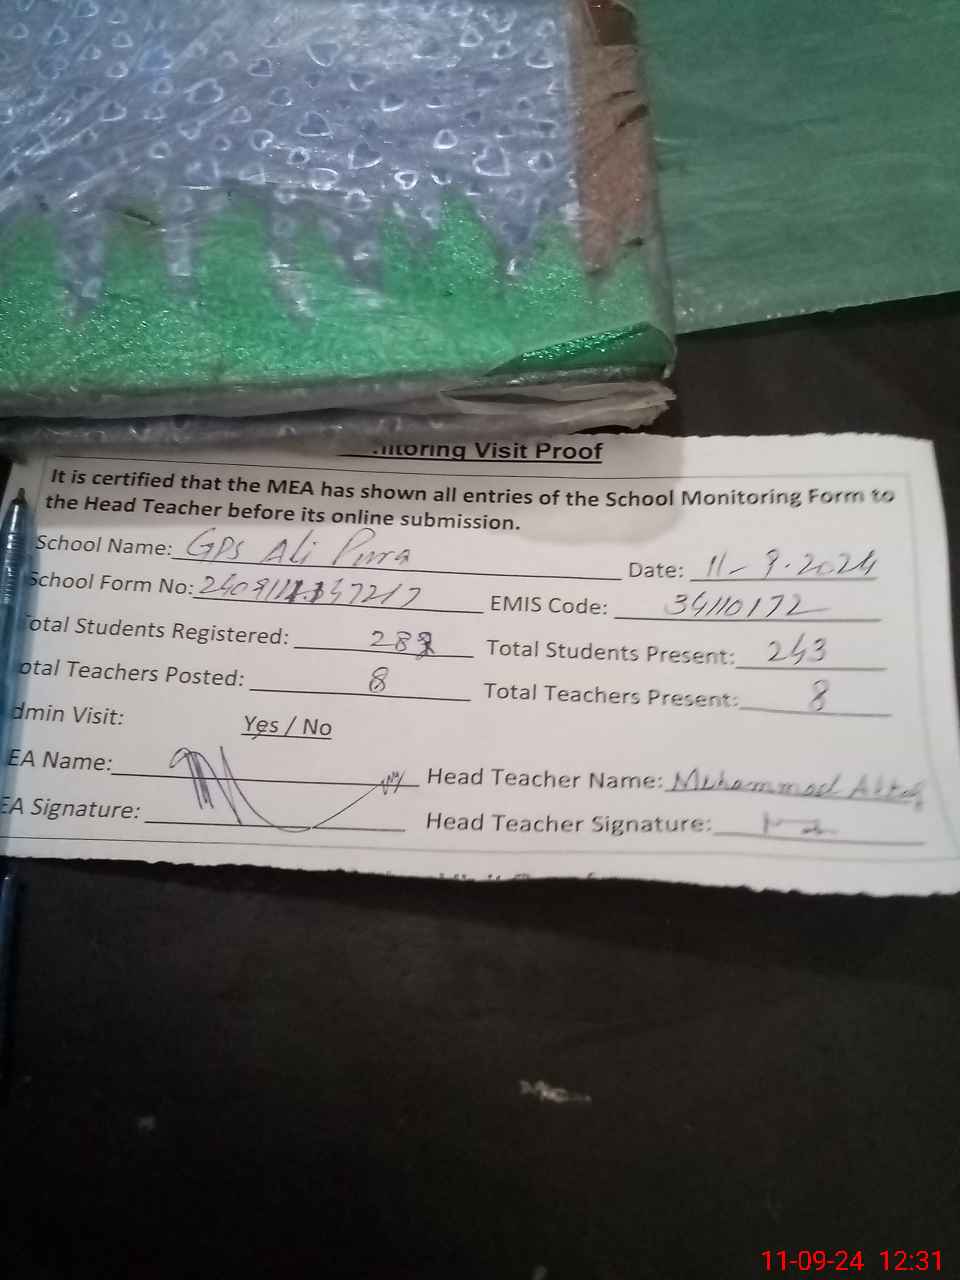 Visit Proof
It is certified that the MEA has shown all entries of the School Monitoring Form to
the Head Teacher before its online submission.
School Name: GPS Ali Pura
Date: 11-9-2024
School Form No:
EMIS Code: 34110172
otal Students Registered:
Total Students Present: 243
otal Teachers Posted: 8
Total Teachers Present: 8
dmin Visit: Yes / No
EA Name:
Head Teacher Name: Muhammad
EA Signature:
Head Teacher Signature:
11-09-24 12:31